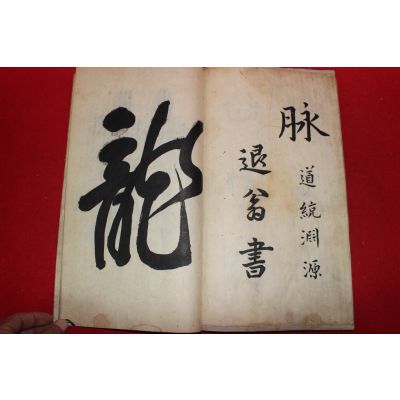 脉
道統淵源
退翁書
龍